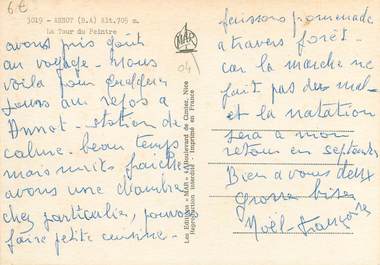 6€
3019 - ANNOT (B.A) Alt. 705 m.
La Tour du Peintre
MAR
04
avons pris goût
au voyage. Nous
voila pour quelques
jours au repos à
Annot - station de
calme. beau temps
mais nuits fraîches
avons une chambre
chez particulier, pouvons
faire petite cuisine -
Les Editions « MAR » Boulevard de Cimiez, Nice
Reproduction interdite - Imprimé en France
faisons promenade
à travers forêt -
car la marche ne
fait pas de mal
et la natation
sera à mon
retour en septembre
Bien à vous deux
grosses bises
Noël - Françoise